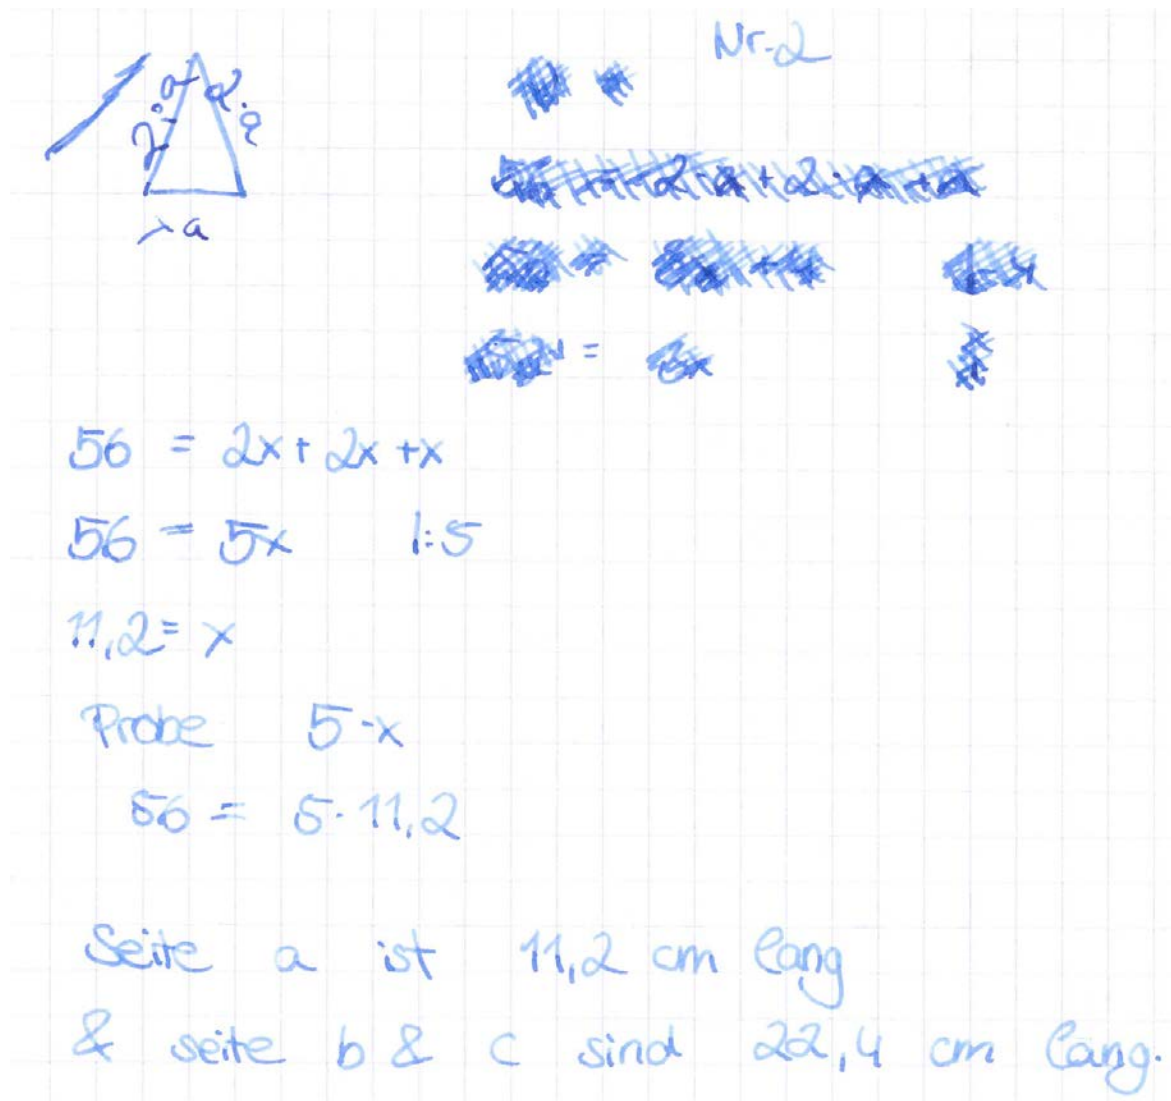 Nr. 2
2·a 2·a
a
56 = 2x + 2x + x
56 = 5x |:5
11,2 = x
Probe 5·x
56 = 5·11,2
Seite a ist 11,2 cm lang
& seite b & c sind 22,4 cm lang.